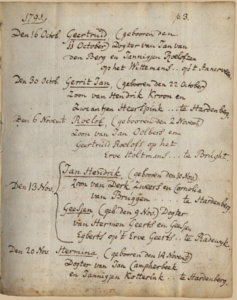 1791. p. 3.
Den 16 Octob. Geertruid (geboren den
13 October) Dogter van Jan van
den Berg en Jannigjen Roelofsen
op het Wittemans ... op 't Anneveen
Den 30 Octob. Gerrit Jan (geboren den 22 October)
Zoon van Hendrik Kroon en
Zwaantien Heerspink ... te Hardenberg
Den 6 Novemb. Roelof, (geboren den 2 Novemb)
Zoon van Jan Oolbers en
Geertruid Roelofs op het
Erve Holtmans ... te Brught.
Jan Hendrik, (geboren den 10 Nov)
Zoon van Derk Zweers en Cornelia
van Bruggen te Hardenberg
Den 13 Nov.
Geesjen (geb. den 9 Nov) Dogter
van Hermen Geerts en Geesjen
Egberts op 't Erve Geerts ... te Radewyk.
Den 20 Nov. Hermina, (geboren den 14 Novemb)
Dogter van Jan Campherbeek
en Jannigjen Katterink ... te Hardenberg.